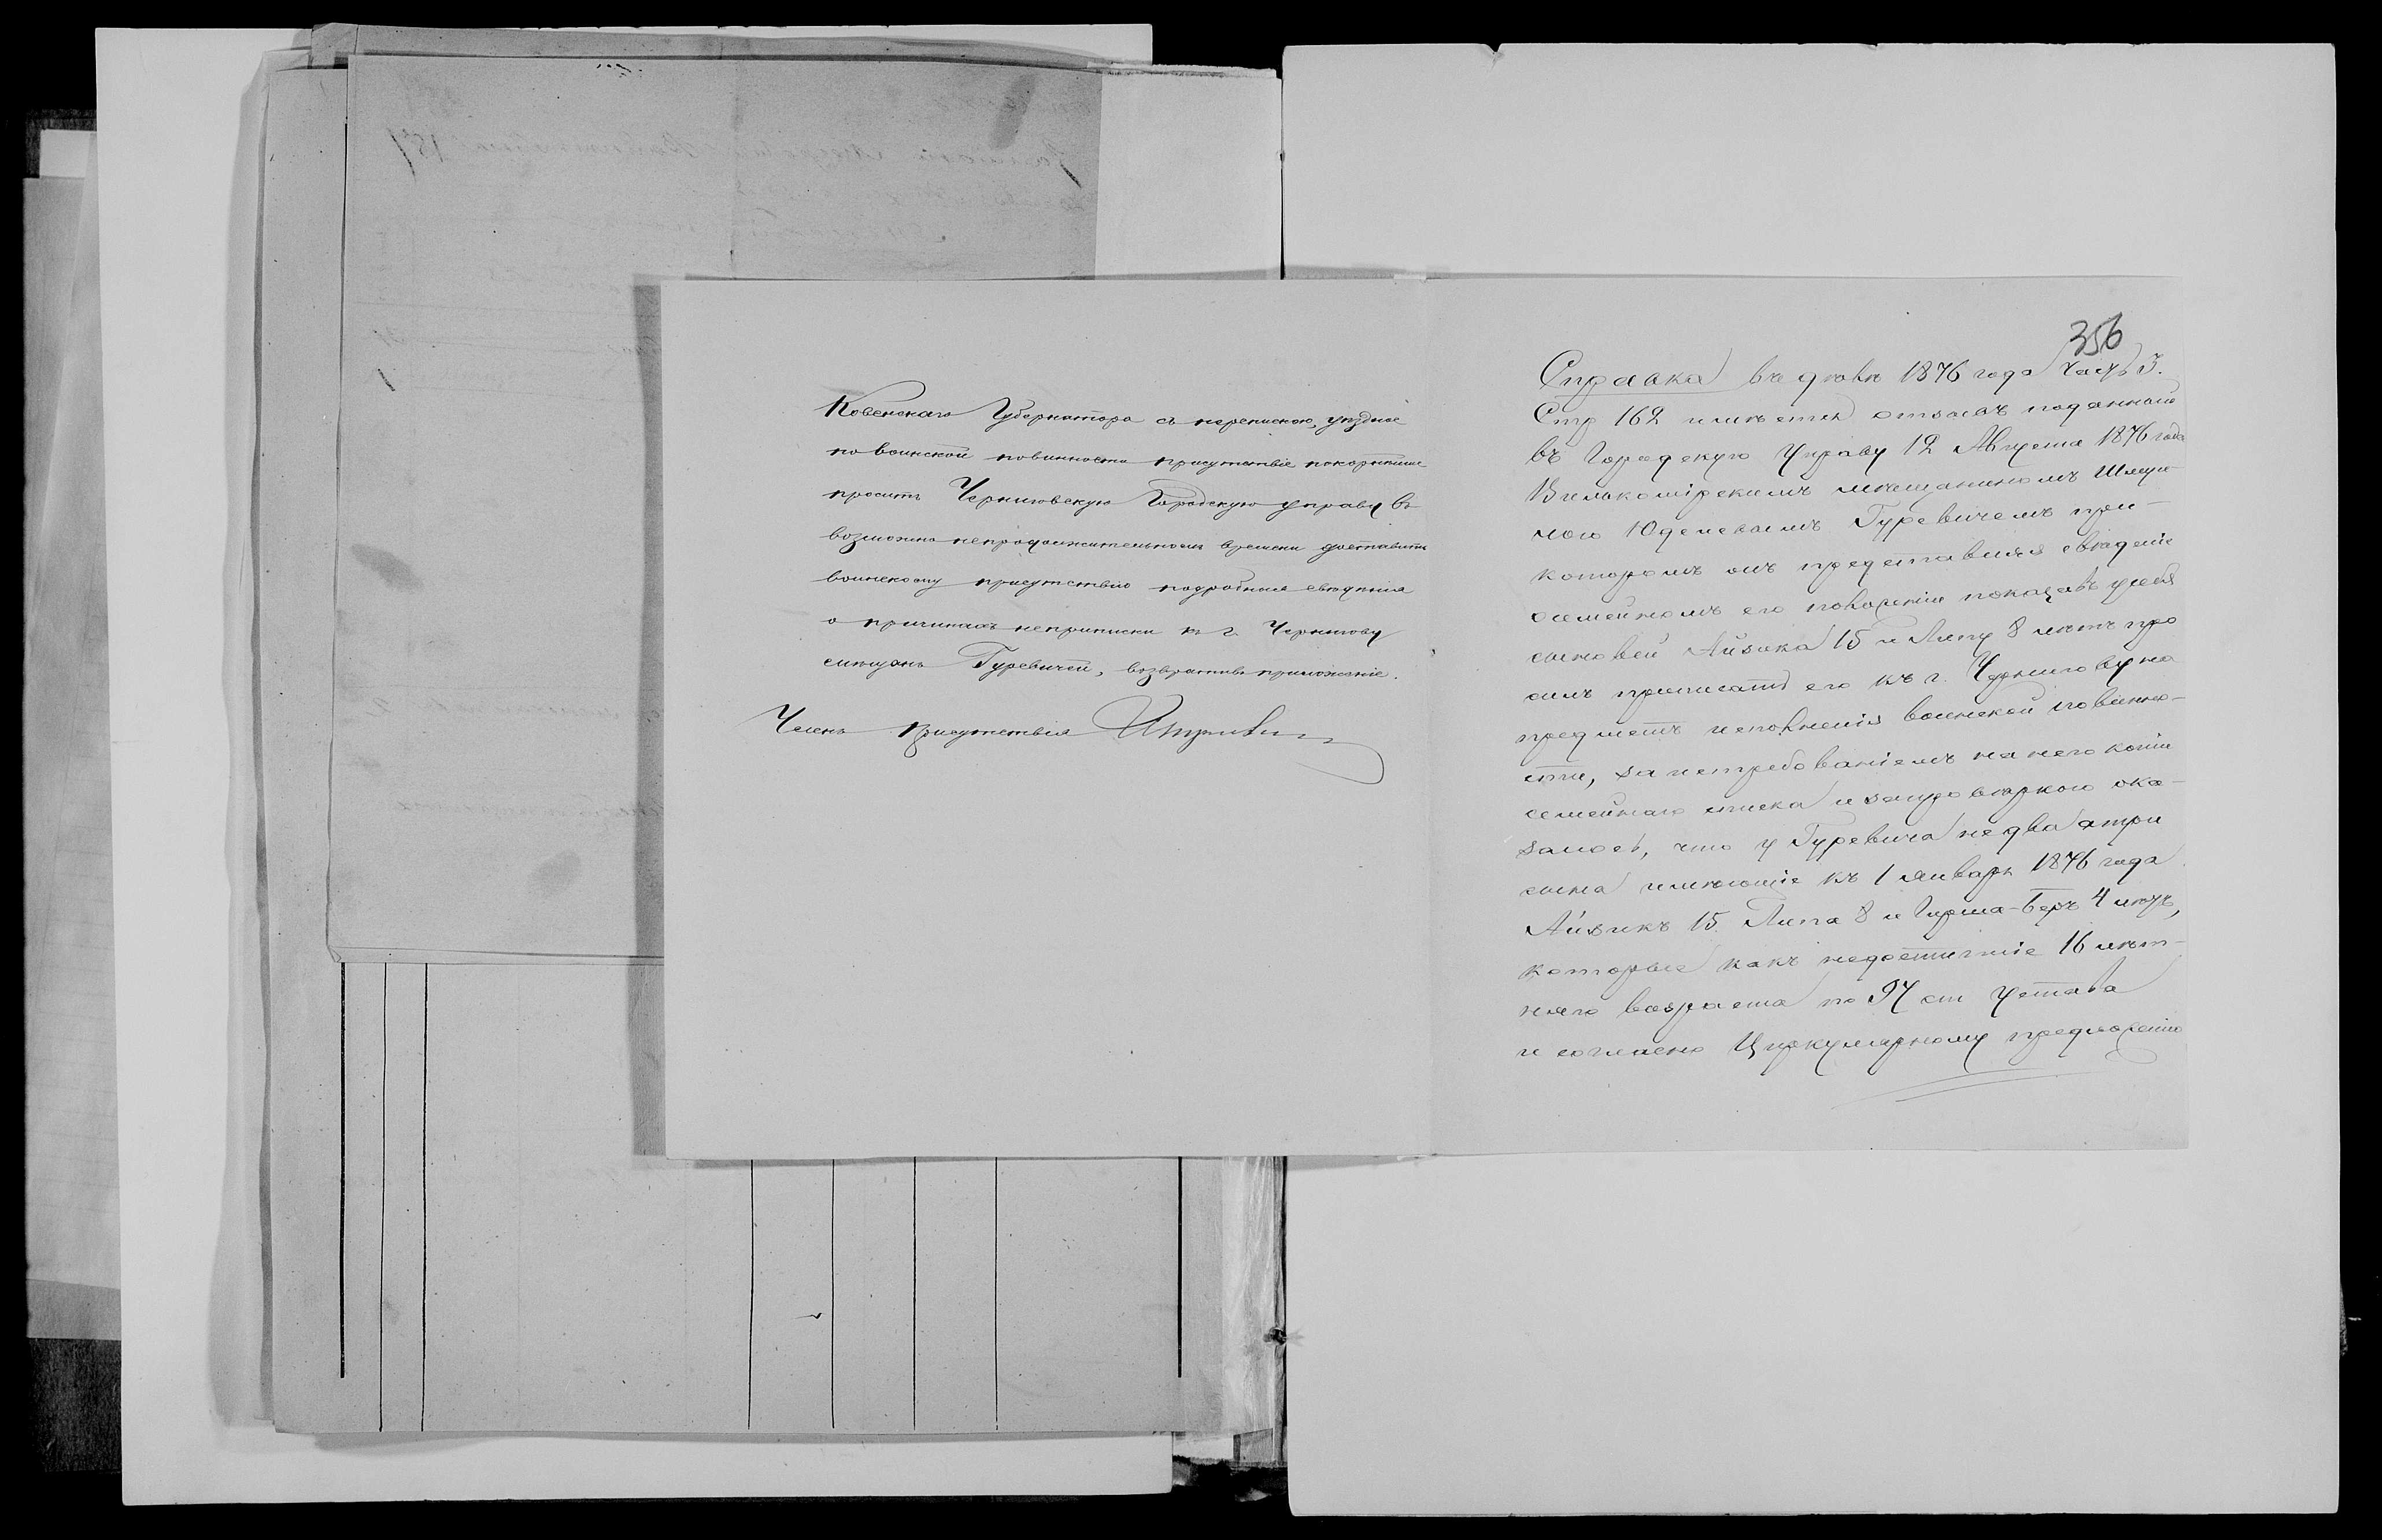 Ковенскаго Губернатора съ перепискою, уѣздное
по воинской повинности присутствіе покорнѣйше
проситъ Черниговскую Городскую управу въ
возможно непродолжительномъ времени доставить
воинскому присутствію подробныя свѣдѣнія
о причинахъ неприписки къ г. Чернигову
мѣщанъ Гуревичей, возвративъ приложеніе.
Членъ присутствія
356
Справка въ дѣлѣ 1876 года Часть 3.
Стр 162 имѣется отзывъ поданный
въ Городскую Управу 12 Августа 1876 года
Вилькомірскимъ мѣщаниномъ Шмуи-
лою Юделевымъ Гуревичемъ при-
которомъ онъ представляя свѣдѣніе
осемейномъ его положеніи показавъ усебя
сыновей Айзика 15 и Липу 8 лѣтъ про
силъ приписать его къ г. Чернигову на
предметъ исполненія воинской повинно-
сти, за истребованіемъ на него копіи
семейнаго списка и запро вѣркою ока-
залось, что у Гуревича не два а три
сына имѣющіе къ 1 январѣ 1876 года
Айзикъ 15 Липа 8 и Гирша-Беръ 4 лѣтъ,
которые какъ недостигшіе 16 лѣт-
няго возраста по 97 ст Устава
и согласно Циркулярному предложенію